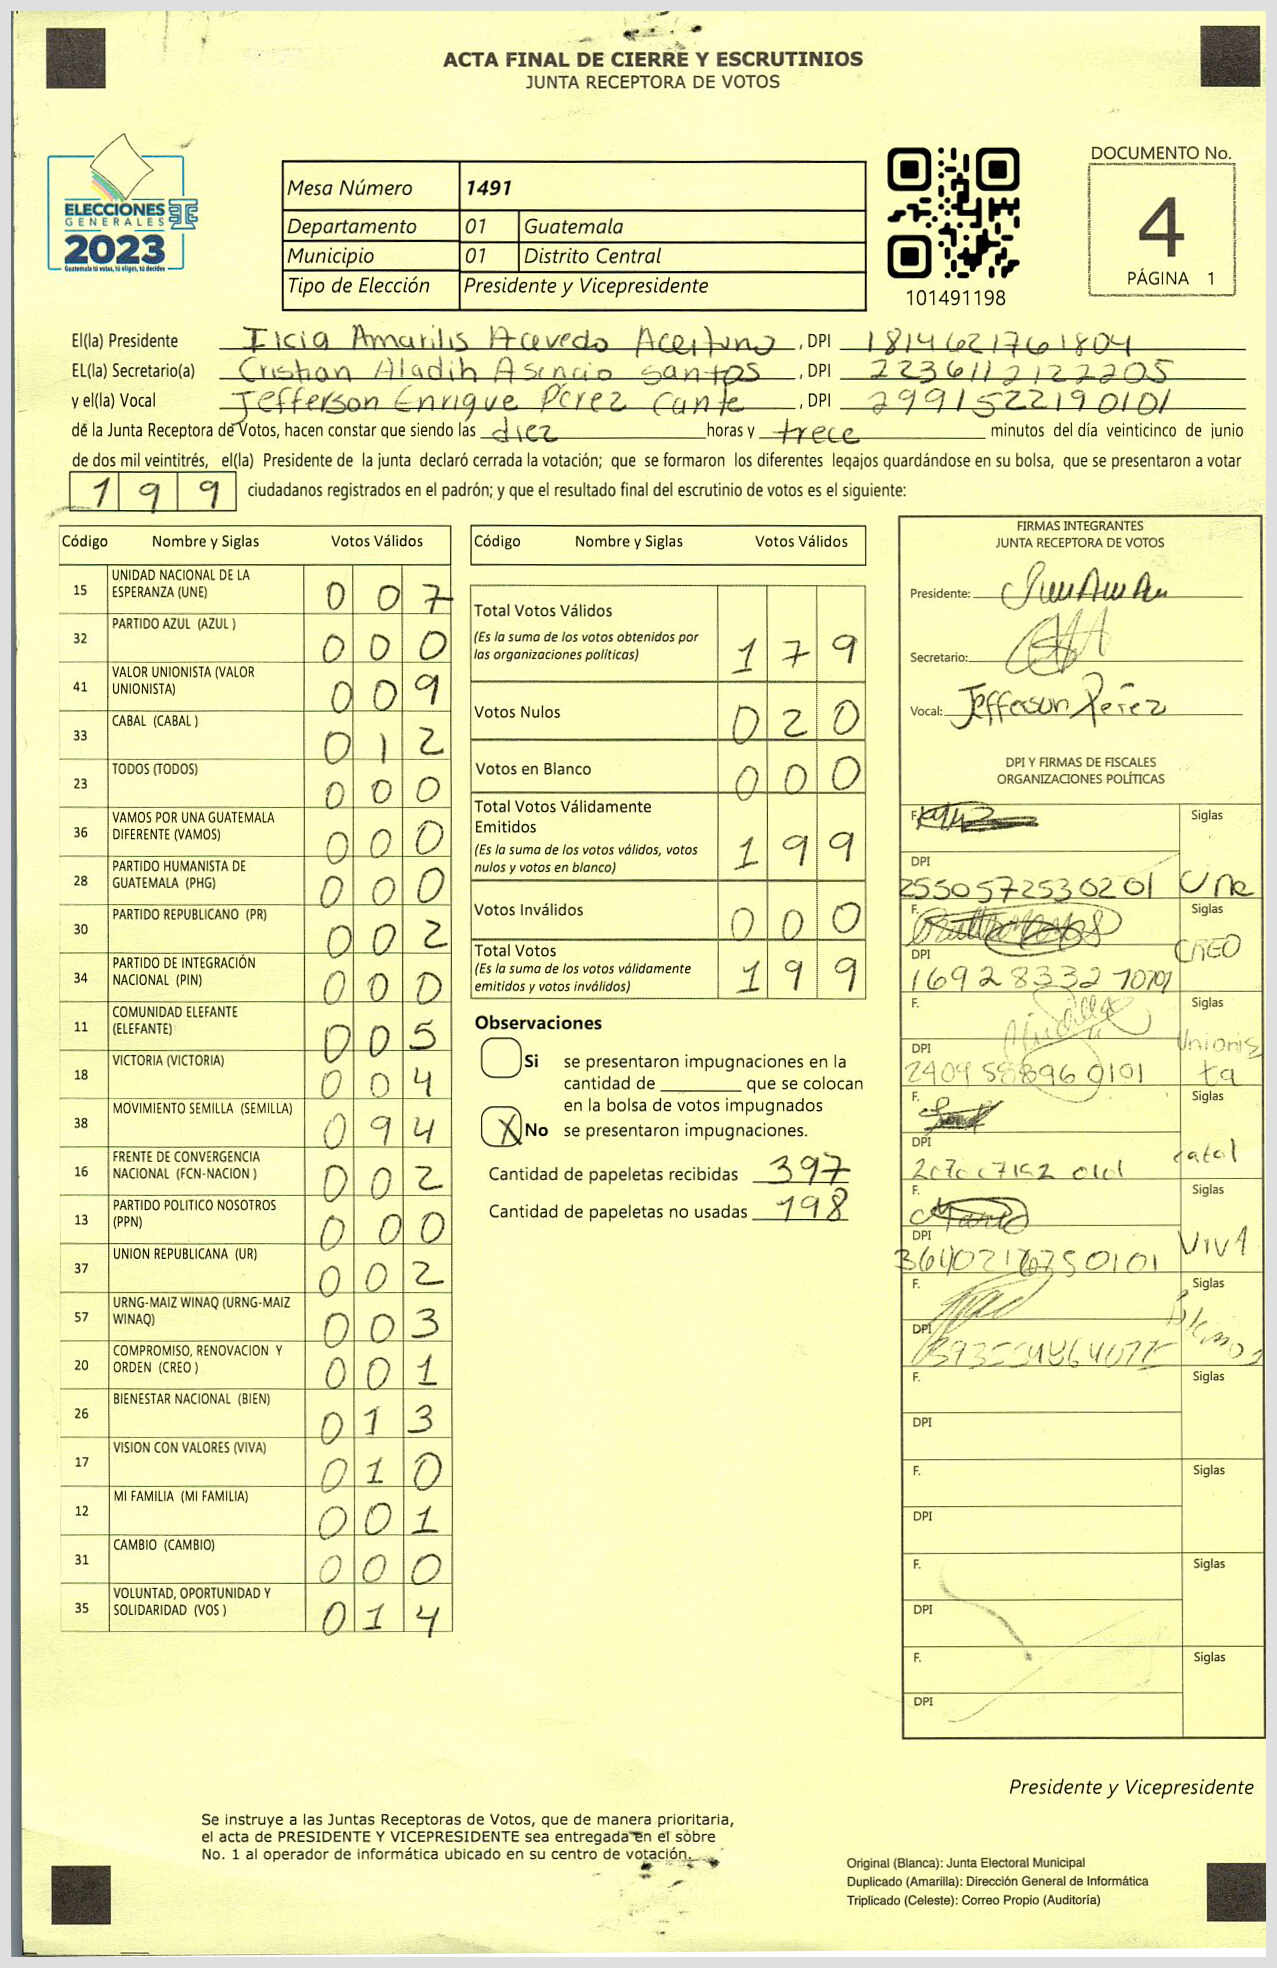 ACTA FINAL DE CIERRE Y ESCRUTINIOS
JUNTA RECEPTORA DE VOTOS
ELECCIONES
GENERALES
2023
Guatemala tú votas, tú eliges, tú decides
Mesa Número 1491
Departamento 01 Guatemala
Municipio 01 Distrito Central
Tipo de Elección Presidente y Vicepresidente
101491198
DOCUMENTO No.
4
PÁGINA 1
El(la) Presidente Ilcia Amarilis Acevedo Aceituno, DPI 1814621761804
EL(la) Secretario(a) Cristian Aladih Asencio Santos, DPI 2236112122205
y el(la) Vocal Jefferson Enrique Pérez Cante, DPI 2991522190101
de la Junta Receptora de Votos, hacen constar que siendo las diez horas y trece minutos del día veinticinco de junio
de dos mil veintitrés, el(la) Presidente de la junta declaró cerrada la votación; que se formaron los diferentes legajos guardándose en su bolsa, que se presentaron a votar
199 ciudadanos registrados en el padrón; y que el resultado final del escrutinio de votos es el siguiente:
Código Nombre y Siglas Votos Válidos
15 UNIDAD NACIONAL DE LA ESPERANZA (UNE) 007
32 PARTIDO AZUL (AZUL ) 000
41 VALOR UNIONISTA (VALOR UNIONISTA) 009
33 CABAL (CABAL ) 012
23 TODOS (TODOS) 000
36 VAMOS POR UNA GUATEMALA DIFERENTE (VAMOS) 000
28 PARTIDO HUMANISTA DE GUATEMALA (PHG) 000
30 PARTIDO REPUBLICANO (PR) 002
34 PARTIDO DE INTEGRACIÓN NACIONAL (PIN) 000
11 COMUNIDAD ELEFANTE (ELEFANTE) 005
18 VICTORIA (VICTORIA) 004
38 MOVIMIENTO SEMILLA (SEMILLA) 094
16 FRENTE DE CONVERGENCIA NACIONAL (FCN-NACION ) 002
13 PARTIDO POLITICO NOSOTROS (PPN) 000
37 UNION REPUBLICANA (UR) 002
57 URNG-MAIZ WINAQ (URNG-MAIZ WINAQ) 003
20 COMPROMISO, RENOVACION Y ORDEN (CREO ) 001
26 BIENESTAR NACIONAL (BIEN) 013
17 VISION CON VALORES (VIVA) 010
12 MI FAMILIA (MI FAMILIA) 001
31 CAMBIO (CAMBIO) 000
35 VOLUNTAD, OPORTUNIDAD Y SOLIDARIDAD (VOS ) 014
Código Nombre y Siglas Votos Válidos
Total Votos Válidos
(Es la suma de los votos obtenidos por
las organizaciones políticas) 179
Votos Nulos 020
Votos en Blanco 000
Total Votos Válidamente
Emitidos
(Es la suma de los votos válidos, votos
nulos y votos en blanco) 199
Votos Inválidos 000
Total Votos
(Es la suma de los votos válidamente
emitidos y votos inválidos) 199
Observaciones
Si se presentaron impugnaciones en la
cantidad de ________ que se colocan
en la bolsa de votos impugnados
X No se presentaron impugnaciones.
Cantidad de papeletas recibidas 397
Cantidad de papeletas no usadas 198
FIRMAS INTEGRANTES
JUNTA RECEPTORA DE VOTOS
Presidente:
Secretario:
Vocal: Jefferson Pérez
DPI Y FIRMAS DE FISCALES
ORGANIZACIONES POLÍTICAS
F. Siglas
DPI
2550572530201 Une
F. Siglas
DPI CREO
F. Siglas
DPI Unionista
F. Siglas
DPI
F. Siglas
DPI VIVA
F. Siglas
DPI
F. Siglas
DPI
F. Siglas
DPI
F. Siglas
DPI
F. Siglas
DPI
Presidente y Vicepresidente
Se instruye a las Juntas Receptoras de Votos, que de manera prioritaria,
el acta de PRESIDENTE Y VICEPRESIDENTE sea entregada en el sobre
No. 1 al operador de informática ubicado en su centro de votación.
Original (Blanca): Junta Electoral Municipal
Duplicado (Amarilla): Dirección General de Informática
Triplicado (Celeste): Correo Propio (Auditoría)